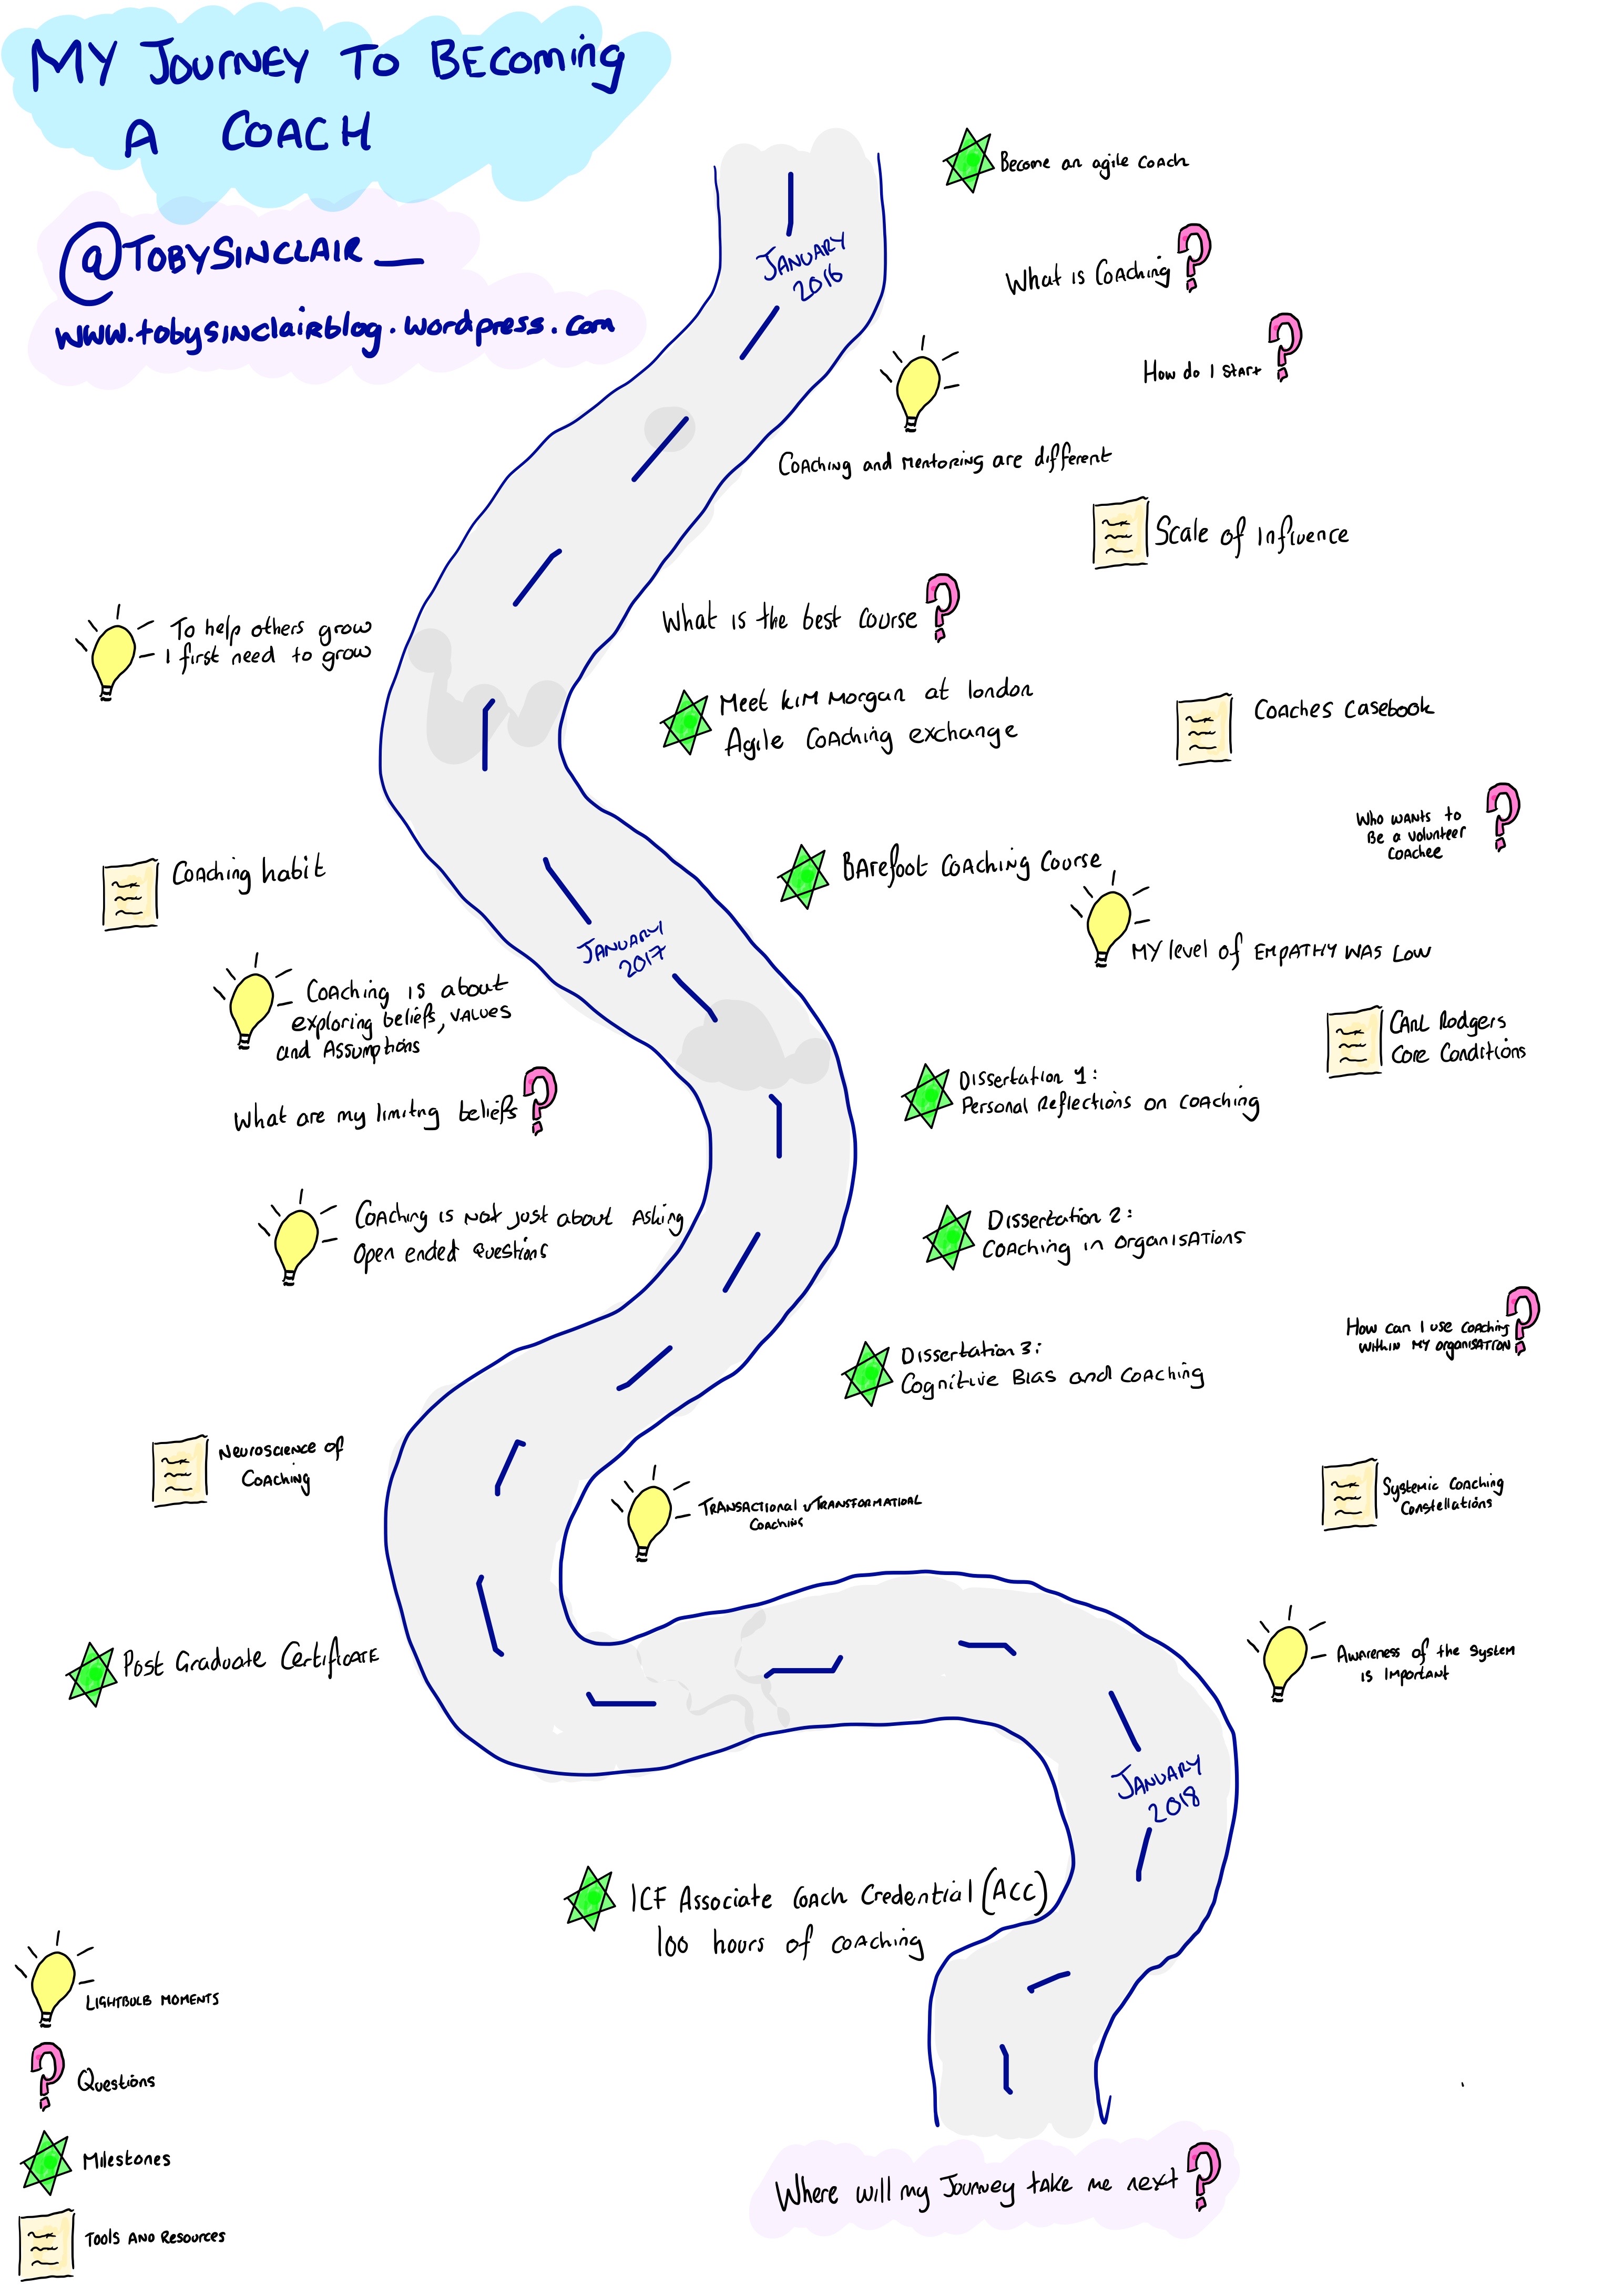 My Journey to Becoming
A Coach
@TobySinclair_
www.tobysinclairblog.wordpress.com
January
2016
Become an agile coach
What is Coaching?
How do I start?
Coaching and mentoring are different
Scale of Influence
What is the best course?
To help others grow
I first need to grow
Meet Kim Morgan at london
Agile Coaching exchange
Coaches Casebook
Who wants to
Be a volunteer
coachee?
Coaching habit
Barefoot Coaching Course
My level of Empathy was low
January
2017
Coaching is about
exploring beliefs, values
and Assumptions
Carl Rodgers
Core Conditions
What are my limitng beliefs?
Dissertation 1:
Personal Reflections on Coaching
Coaching is not just about Asking
Open ended Questions
Dissertation 2:
Coaching in organisations
How can I use coaching
within my organisation?
Dissertation 3:
Cognitive Bias and Coaching
Neuroscience of
Coaching
Transactional v Transformatioal
Coaching
Systemic Coaching
Constellations
Post Graduate Certificate
Awareness of the system
is important
January
2018
ICF Associate Coach Credential (ACC)
100 hours of coaching
Lightbulb moments
Questions
Milestones
Tools and Resources
Where will my Journey take me next?